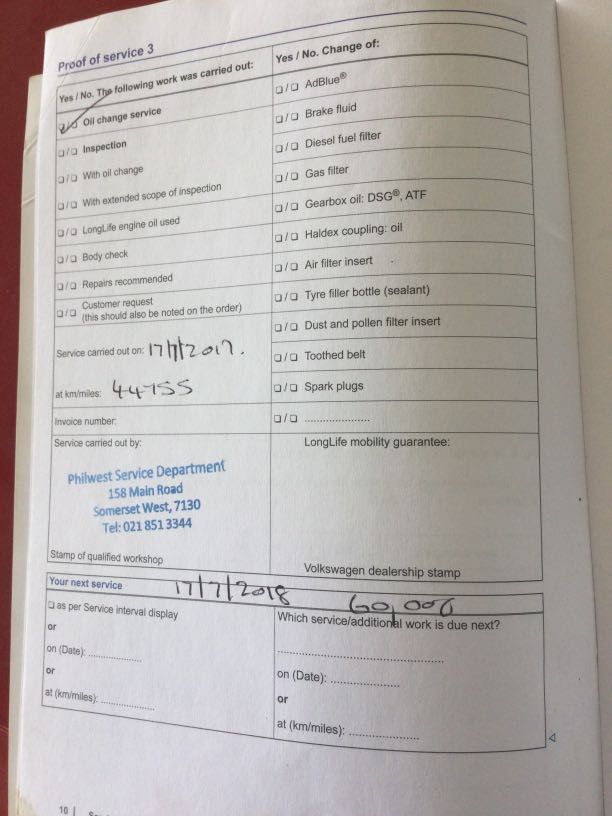 Proof of service 3
Yes / No. The following work was carried out:
❏/❏ Oil change service
❏/❏ Inspection
❏/❏ With oil change
❏/❏ With extended scope of inspection
❏/❏ LongLife engine oil used
❏/❏ Body check
❏/❏ Repairs recommended
❏/❏ Customer request
(this should also be noted on the order)
Service carried out on: 17/7/2017.
at km/miles: 44755
Invoice number:
Service carried out by:
Philwest Service Department
158 Main Road
Somerset West, 7130
Tel: 021 851 3344
Stamp of qualified workshop
Yes / No. Change of:
❏/❏ AdBlue®
❏/❏ Brake fluid
❏/❏ Diesel fuel filter
❏/❏ Gas filter
❏/❏ Gearbox oil: DSG®, ATF
❏/❏ Haldex coupling: oil
❏/❏ Air filter insert
❏/❏ Tyre filler bottle (sealant)
❏/❏ Dust and pollen filter insert
❏/❏ Toothed belt
❏/❏ Spark plugs
❏/❏ .....................
LongLife mobility guarantee:
Volkswagen dealership stamp
Your next service 17/7/2018 60,000
❏ as per Service interval display
or
on (Date): ................
or
at (km/miles): ................
Which service/additional work is due next?
..................................................
on (Date): .....................
or
at (km/miles): .....................
10